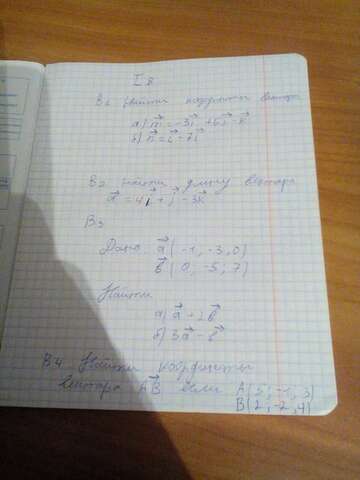 I в
В1 Найти координаты вектора
а) m⃗ = -3i⃗ + 6j⃗ - k⃗
б) n⃗ = i⃗ - 7j⃗
В2 Найти длину вектора
a⃗ = 4i⃗ + j⃗ - 3k⃗
В3
Дано: a⃗ (-1; -3; 0)
b⃗ (0; -5; 7)
Найти
а) a⃗ + 2b⃗
б) 3a⃗ - b⃗
В4 Найти координаты
вектора A⃗B⃗ если A(5; -1; 3)
B(2; -2; 4)